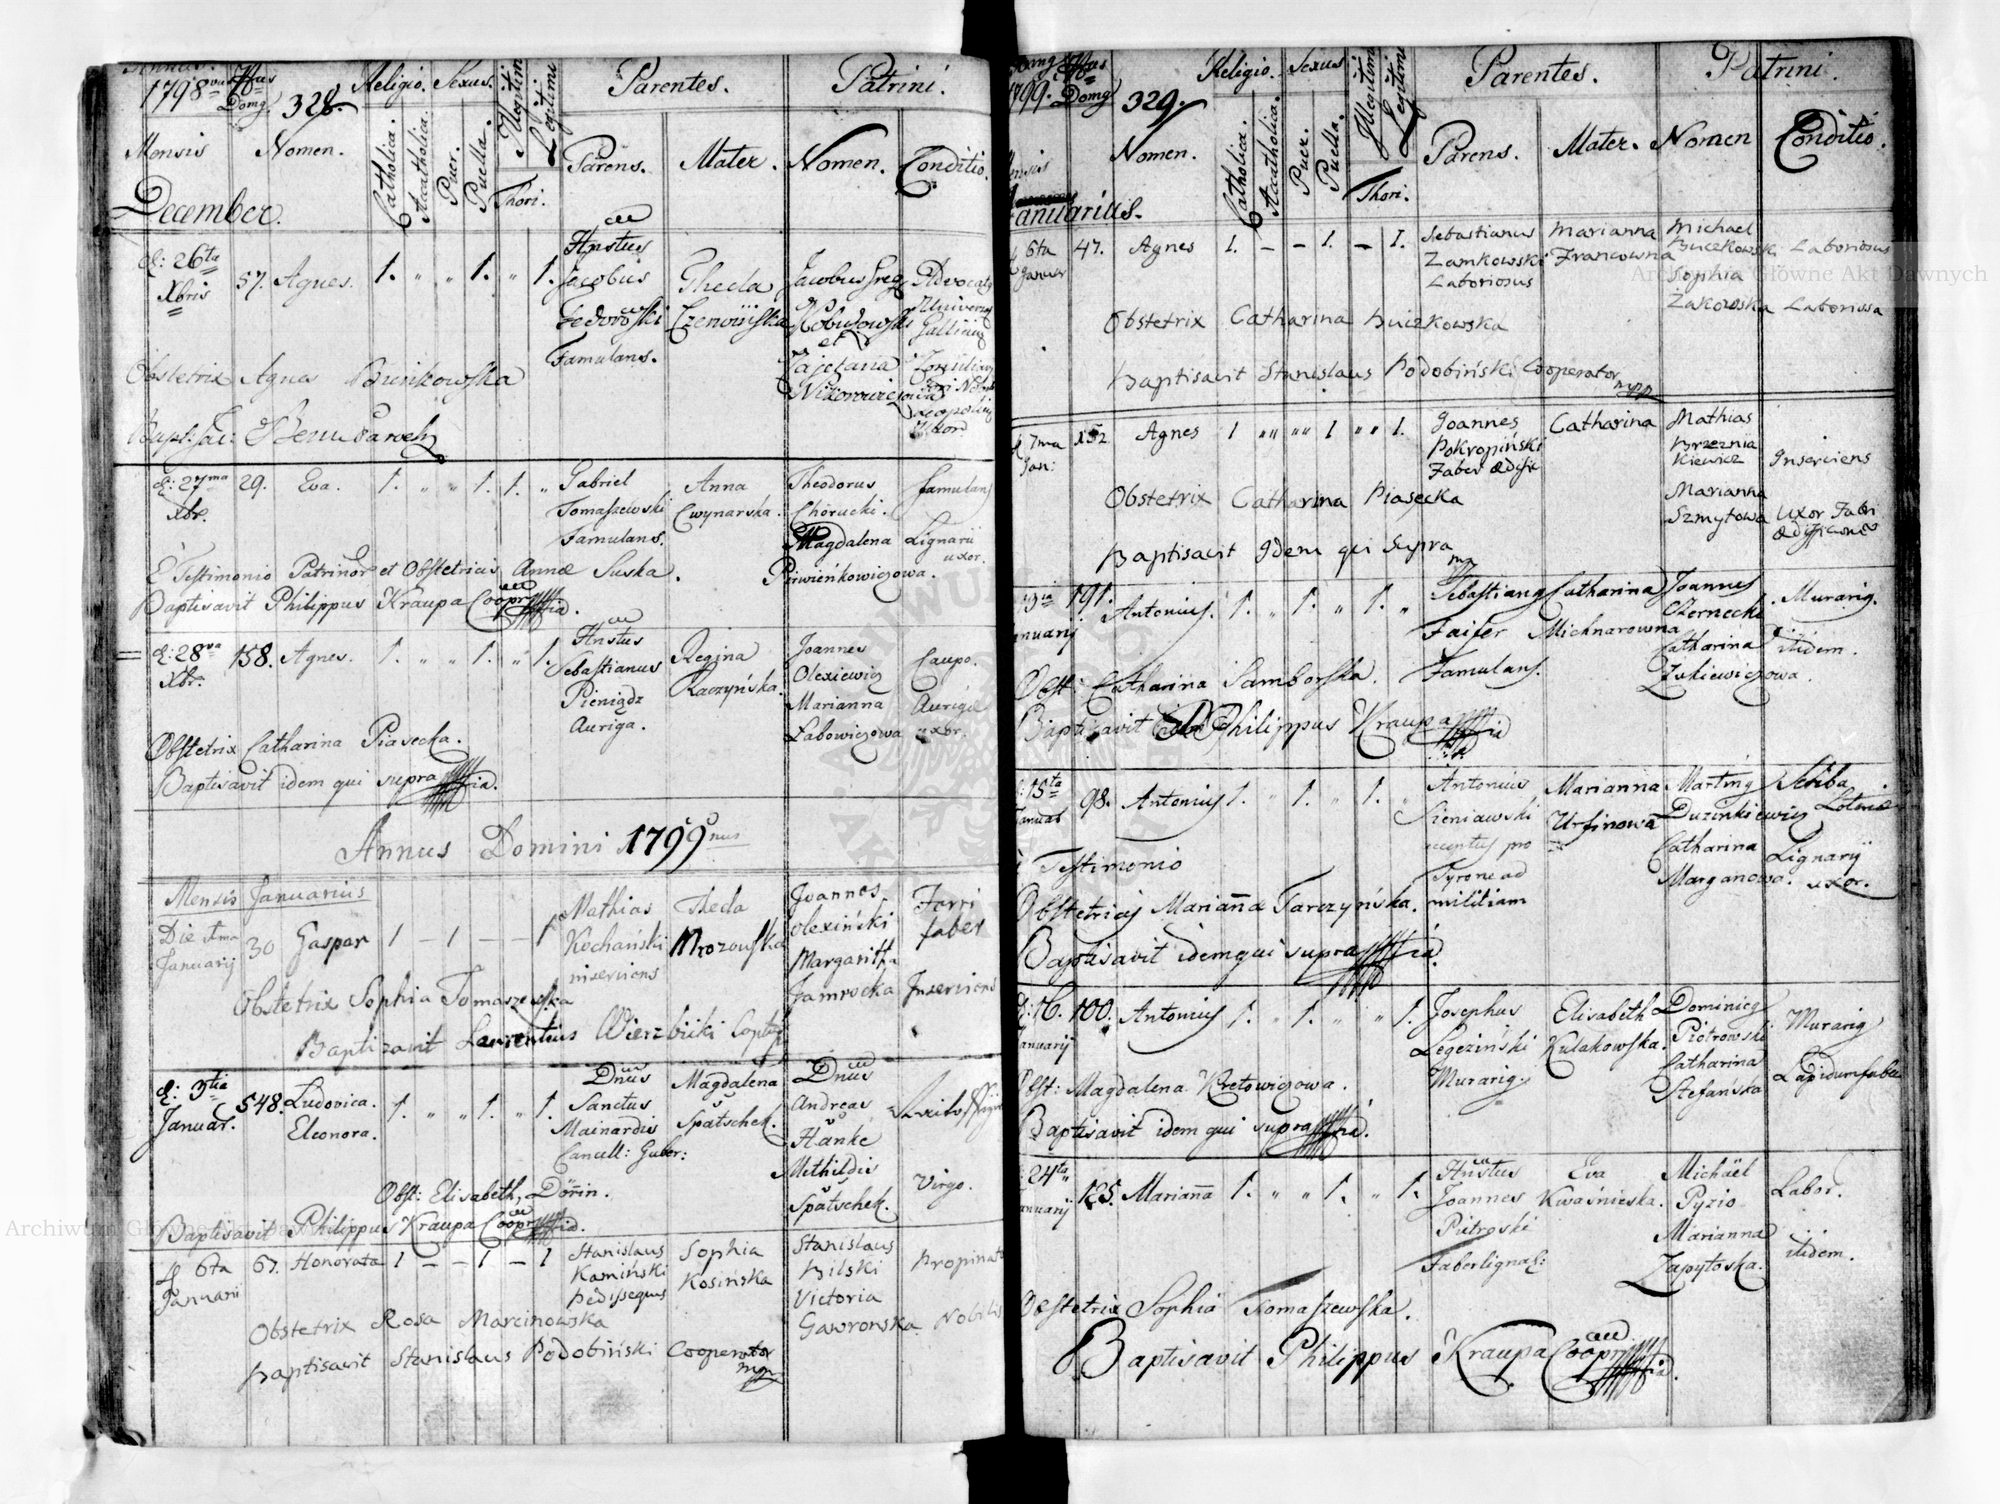 Annus
1798vus Nrus Domg 328. Religio. Sexus. Illegitimi Legitimi Parentes. Patrini.
Mensis Nomen. Catholica. Acatholica. Puer. Puella. Thori. Parens. Mater. Nomen. Conditio.
December.
d: 26ta Xbris 57. Agnes. 1. " " 1. " 1.
Hnstus
Jacobus
Fedorowski
Famulans.
Thecla
Czerwińska
Jacobus Greg
et
Kajetana
Nikorowiczowa
Obstetrix Agnes Bieńkowska
d: 27ma Xbr. 29. Eva. 1. " " 1. 1. "
Gabriel
Tomaszewski
Famulans.
Anna
Cwynarska.
Theodorus
Chorucki.
Magdalena
Piwieńkowiczowa.
Famulans
Lignarii
uxor.
E Testimonio Patrinor et Obstetricis Annæ Suska.
Baptisavit Philippus Kraupa Coopr
d: 28va Xbr. 158. Agnes. 1. " " 1. " 1.
Hnstus
Sebastianus
Pieniądz
Auriga.
Regina
Raczyńska.
Joannes
Olexiewicz
Marianna
Labowiczowa
Caupo.
Aurigæ
uxor.
Obstetrix Catharina Piasecka.
Baptisavit idem qui supra
Annus Domini 1799nus
Mensis Januarius
Die 1ma Januarij 30 Gaspar 1 – 1 – – 1
Mathias
Kochański
inserviens
Thecla
Mrozowska
Joannes
Olexiński
Margaritha
Jamrocka
Ferri
faber
Inserviens
Obstetrix Sophia Tomaszewska
Baptizavit Laurentius Wierzbicki
d: 3tia Januar. 548. Ludovica. Eleonora. 1. " " 1. " 1.
Dnus
Sanctus
Mainardis
Cancell: Guber:
Magdalena
Spatschek.
Dnus
Andreas
Hanke
Methildis
Spatschek.
Virgo.
Obst: Elisabeth Dörin.
Baptisavit Philippus Kraupa Coopr
d 6ta Januarii 67. Honorata 1 – – 1 – 1
Stanislaus
Kamiński
Pedissequus
Sophia
Kosińska
Stanislaus
Bilski
Victoria
Gawronska
Propinat
Nobilis
Obstetrix Rosa Marcinowska
Baptisavit Stanislaus Podobiński Cooperator
mpp
1799. Domg 329. Religio. Sexus Illegitimi Legitimi Parentes. Patrini.
Mensis Nomen. Catholica. Acatholica. Puer. Puella. Thori. Parens. Mater. Nomen Conditio.
Januarius.
d 6ta Januar 47. Agnes 1. – – 1. – 1.
Sebastianus
Zamkowski
Laboriosus
Marianna
Francowna
Michael
Buczkowski
Sophia
Żakowska
Laboriosus
Laboriosa
Obstetrix Catharina Buczkowska
Baptisavit Stanislaus Podobiński Cooperator
mpp
d 7ma Jan: 152 Agnes 1 " " 1 " 1.
Joannes
Pokropiński
Faber ædific
Catharina
Mathias
Brzeznia
kiewicz
Marianna
Szmytowa
Inserviens
Uxor Fabri
Obstetrix Catharina Piasecka
Baptisavit Idem qui Supra
13ia Januarij 191. Antonius. 1. " 1. " 1. "
Sebastiang
Faifer
Famulans.
Catharina
Michnarowna
Joannes
Czernecki
Catharina
Zukiewiczowa.
Murarig.
itidem.
Obst: Catharina Samborska.
Baptisavit Philippus Kraupa
d: 15ta Januar 98. Antonius 1. " 1. " 1. "
Antonius
Sieniawski
receptus pro
Tyrone ad
militiam
Marianna
Urfinowa
Marting
Duzinkiewicz
Catharina
Marganowa.
Scriba
Loteriæ
Lignarij
uxor.
è Testimonio
Obstetricis Mariannæ Tarczyńska.
Baptisavit idem qui supra
d: 16. Januarij 100. Antonius 1. " 1. " " 1.
Josephus
Legeziński
Murarig
Elisabeth
Kulakowska.
Dominicg
Piotrowski
Catharina
Stefańska
Murarig
Lapidum faber
Obst: Magdalena Kretowiczowa.
Baptisavit idem qui supra
d: 24ta Januarij 125. Marianna 1. " " 1. " 1.
Hnstus
Joannes
Pietroski
Faber lignar:
Eva
Kwaśnieska.
Michäel
Pyzio
Marianna
Zapytoska.
Labor.
itidem.
Obstetrix Sophia Tomaszewska.
Baptisavit Philippus Kraupa Coopr
Archiwum Główne Akt Dawnych
Archiwum Główne Akt Dawnych